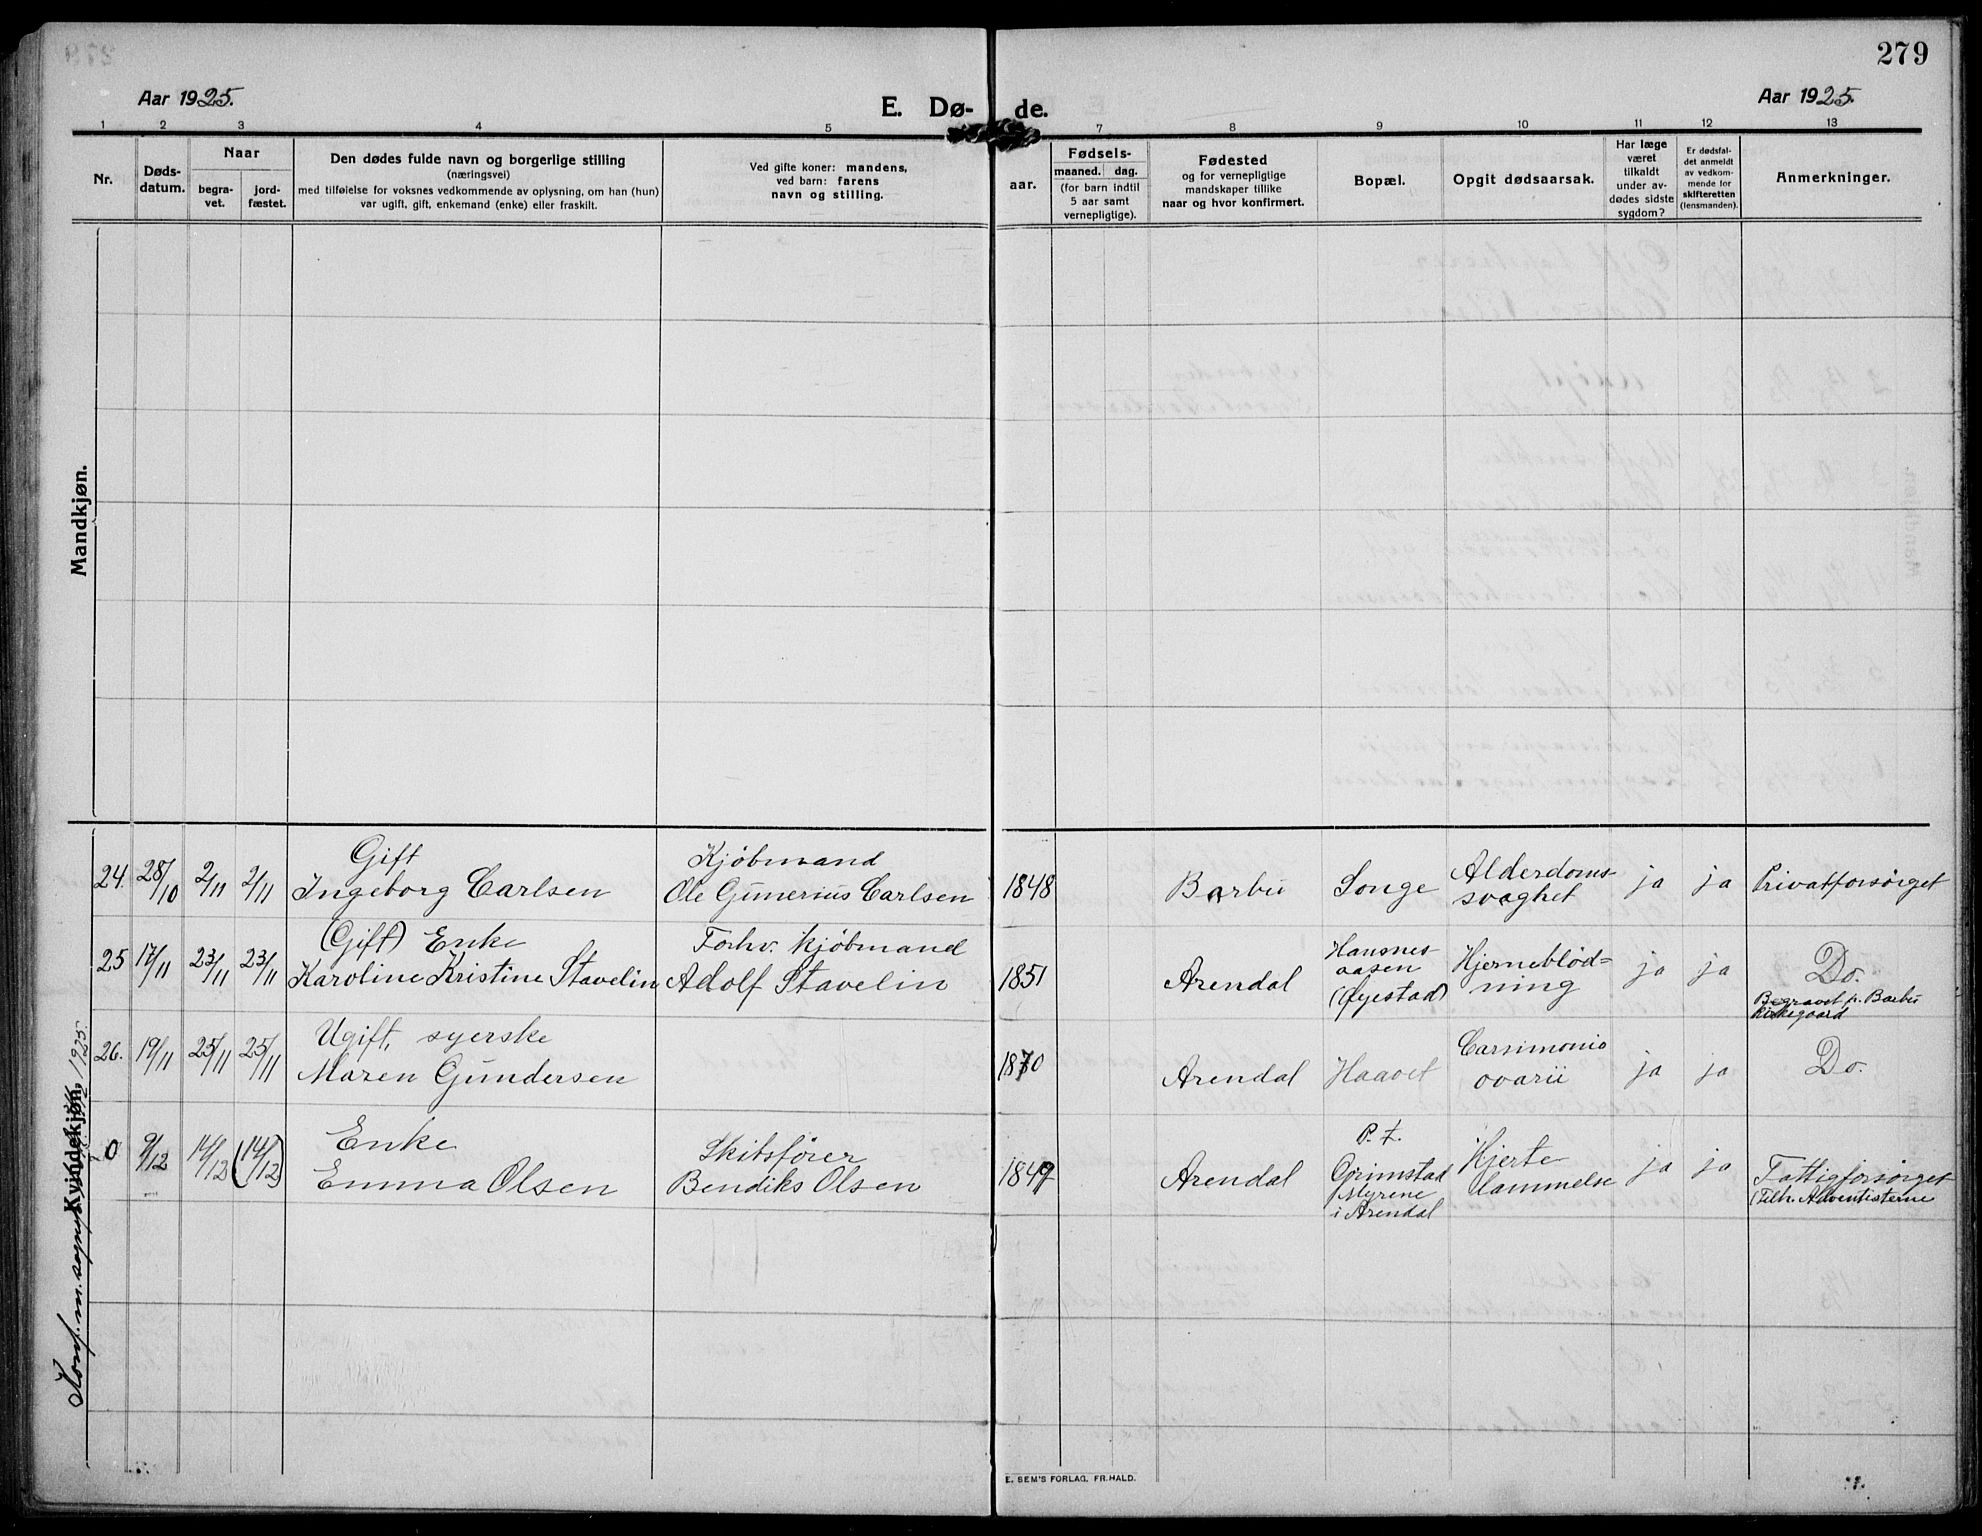 279
Aar 1925.
E. Dø- de.
Aar 1925.
1 2 3 4 5 7 8 9 10 11 12 13
Nr.
Døds-
datum.
Naar
begra-
vet.
jord-
fæstet.
Den dødes fulde navn og borgerlige stilling
(næringsvei)
med tilføielse for voksnes vedkommende av oplysning, om han (hun)
var ugift, gift, enkemand (enke) eller fraskilt.
Ved gifte koner: mandens,
ved barn: farens
navn og stilling.
aar.
Fødsels-
maaned. dag.
(for barn indtil
5 aar samt
vernepligtige).
Fødested
og for vernepligtige
mandskaper tillike
naar og hvor konfirmert.
Bopæl.
Opgit dødsaarsak.
Har læge
været
tilkaldt
under av-
dødes sidste
sygdom?
Er dødsfal-
det anmeldt
av vedkom-
mende for
skifteretten
(lensmanden).
Anmerkninger.
Mandkjøn.
Kvindekjøn.
24. 28/10 2/11 2/11
Gift
Ingeborg Carlsen
Kjöbmand
Ole Gunerius Carlsen
1848
Barbu
Songe
Alderdoms-
svaghet
ja
ja
Privatforsörget
25 17/11 23/11 23/11
(Gift) Enke
Karoline Kristine Stavelin
Forhv. kjöbmand
Adolf Stavelin
1851
Arendal
Hansnes-
aasen
(Øyestad)
Hjerneblöd=
ning
ja
ja
Do.
Begravet p. Barbu
Kirkegaard
26. 19/11 25/11 25/11
Ugift, syerske
Maren Gundersen
1870
Arendal
Haavet
Carsimonio
ovarii
ja
ja
Do.
0 9/12 14/12 (14/12)
Enke
Emma Olsen
Skibsförer
Bendiks Olsen
1849
Arendal
P. t.
Grimstad
Myrene
i Arendal
Hjerte
lammelse
ja
ja
Fattigforsörget
(Tilh. Adventisterne
Konf. m. sogne 1925.
E. SEM'S FORLAG, FR.HALD.